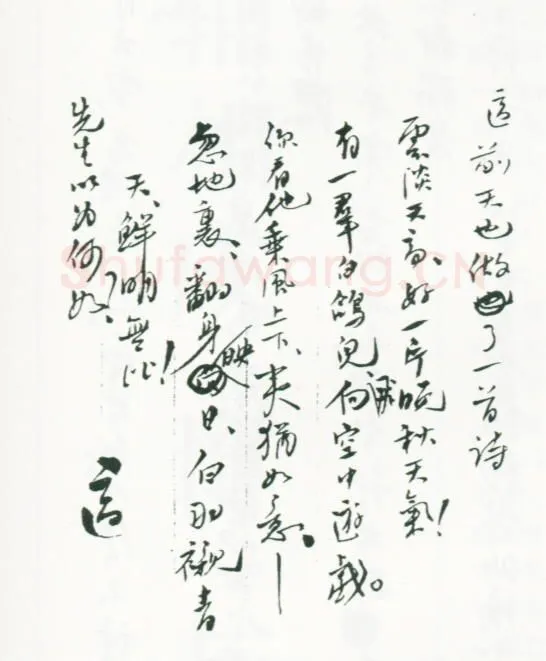 適前天也做了一首詩
雲淡天高好一片晚秋天氣!
有一羣白鴿兒向空中遊戲。
你看他乘風上下、夷猶如意、—
忽地裏、翻身映日、白羽襯青
天、鮮明無比!
先生以為何如?
適
Shufawang.CN